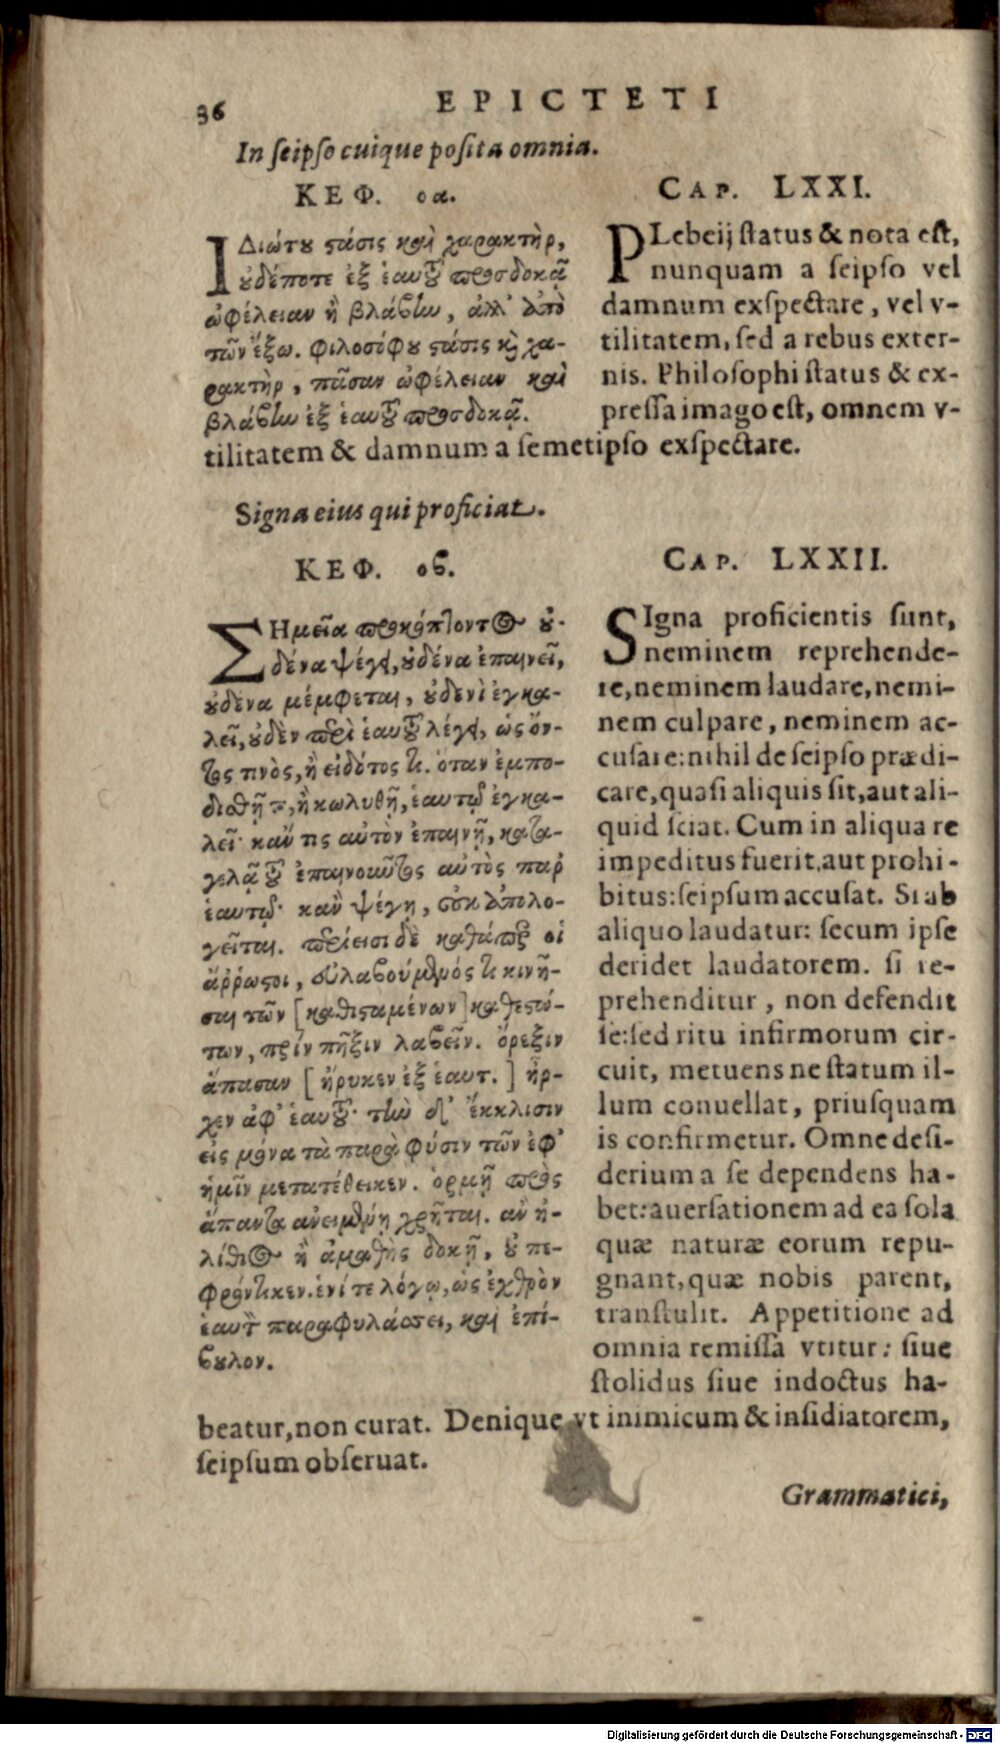 36
EPICTETI
In ſeipſo cuique poſita omnia.
ΚΕΦ. οα.
ΙΔιώτου στάσις καὶ χαρακτὴρ,
οὐδέποτε ἐξ ἑαυτοῦ προσδοκᾷ
ὠφέλειαν ἢ βλάβην, ἀλλ' ἀπὸ
τῶν ἔξω. φιλοσόφου στάσις καὶ χα-
ρακτὴρ, πᾶσαν ὠφέλειαν καὶ
βλάβην ἐξ ἑαυτοῦ προσδοκᾷ.
CAP. LXXI.
PLebeij ſtatus & nota eſt,
nunquam a ſeipſo vel
damnum exſpectare, vel v-
tilitatem, ſed a rebus exter-
nis. Philoſophi ſtatus & ex-
preſſa imago eſt, omnem v-
tilitatem & damnum a ſemetipſo exſpectare.
Signa eius qui proficiat.
ΚΕΦ. οβ.
ΣΗμεῖα προκόπτοντος οὐ-
δένα ψέγει, οὐδένα ἐπαινεῖ,
οὐδένα μέμφεται, οὐδενὶ ἐγκα-
λεῖ, οὐδὲν περὶ ἑαυτοῦ λέγει, ὡς ὄν-
τος τινὸς, ἢ εἰδότος τι. ὁταν ἐμπο-
διθῇ τι, ἢ κωλυθῇ, ἑαυτῷ ἐγκα-
λεῖ· κἄν τις αὐτὸν ἐπαινῇ, κατα-
γελᾷ τοῦ ἐπαινοῦντος αὐτὸς παρ'
ἑαυτῷ· κἂν ψέγῃ, οὐκ ἀπολο-
γεῖται. περίεισι δὲ καθάπερ οἱ
ἄῤῥωστοι, εὐλαβούμενός τι κινῆ-
σαι τῶν [καθισταμένων] καθεστώ-
των, πρὶν πῆξιν λαβεῖν. ὄρεξιν
ἅπασαν [ἤρυκεν ἐξ ἑαυτ.] ἦρ-
κεν ἀφ' ἑαυτοῦ· τὴν δ' ἔκκλισιν
εἰς μόνα τὰ παρὰ φύσιν τῶν ἐφ'
ἡμῖν μετατέθεικεν. ὁρμῇ πρὸς
ἅπαντα ἀνειμένῃ χρῆται. ἂν ἠ-
λίθιος ἢ ἀμαθὴς δοκῇ, οὐ πε-
φρόντικεν. ἑνί τε λόγῳ, ὡς ἐχθρὸν
ἑαυτὸν παραφυλάσσει, καὶ ἐπί-
βουλον.
CAP. LXXII.
SIgna proficientis ſunt,
neminem reprehende-
re, neminem laudare, nemi-
nem culpare, neminem ac-
cuſare: nihil de ſeipſo prædi-
care, quaſi aliquis ſit, aut ali-
quid ſciat. Cum in aliqua re
impeditus fuerit, aut prohi-
bitus: ſeipſum accuſat. Si ab
aliquo laudatur: ſecum ipſe
deridet laudatorem. ſi re-
prehenditur, non defendit
ſe: ſed ritu infirmorum cir-
cuit, metuens ne ſtatum il-
lum conuellat, priuſquam
is confirmetur. Omne deſi-
derium a ſe dependens ha-
bet: auerſationem ad ea ſola
quæ naturæ eorum repu-
gnant, quæ nobis parent,
tranſtulit. Appetitione ad
omnia remiſſa vtitur: ſiue
ſtolidus ſiue indoctus ha-
beatur, non curat. Denique vt inimicum & inſidiatorem,
ſeipſum obſeruat.
Grammatici,
Digitalisierung gefördert durch die Deutsche Forschungsgemeinschaft - DFG